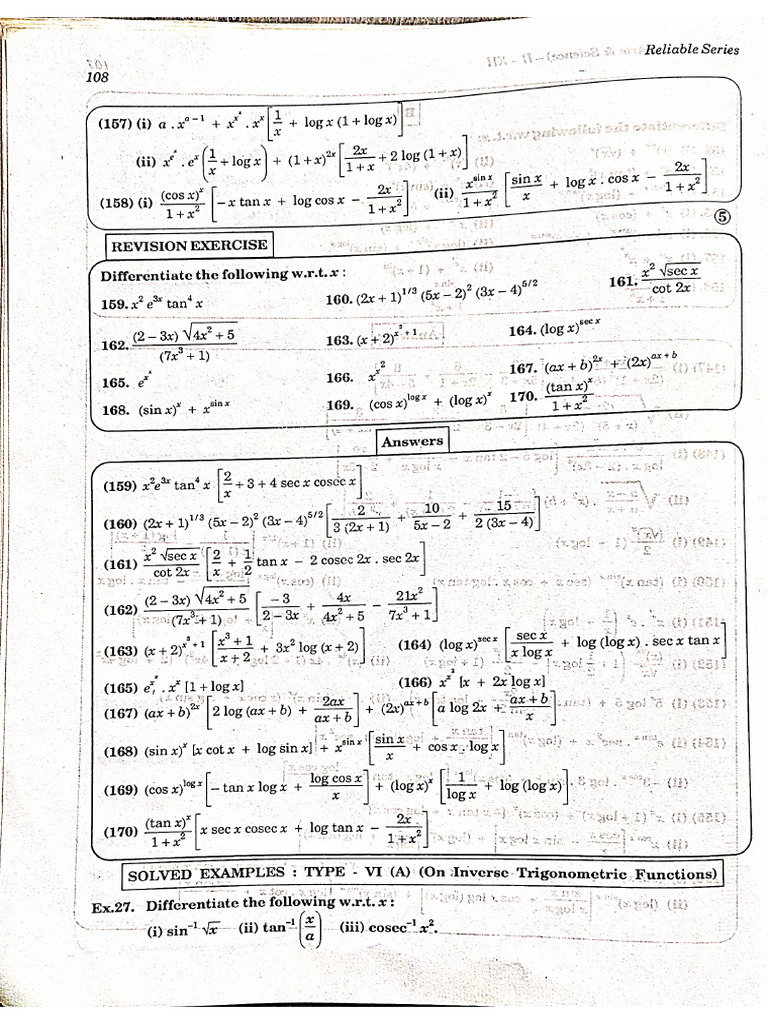 Reliable Series
108
(157) (i) a . x^{a – 1} + x^{x^x} . x^x [1/x + log x (1 + log x)]
(ii) x^{e^x} . e^x (1/x + log x) + (1 + x)^{2x} [2x/(1 + x) + 2 log (1 + x)]
(158) (i) (cos x)^x/(1 + x^2) [– x tan x + log cos x – 2x/(1 + x^2)] (ii) x^{sin x}/(1 + x^2) [sin x/x + log x . cos x – 2x/(1 + x^2)]
⑤
REVISION EXERCISE
Differentiate the following w.r.t. x :
159. x^2 e^{3x} tan^4 x 160. (2x + 1)^{1/3} (5x – 2)^2 (3x – 4)^{5/2} 161. x^2 √(sec x)/cot 2x
162. (2 – 3x) √(4x^2 + 5)/(7x^3 + 1) 163. (x + 2)^{x^3 + 1} 164. (log x)^{sec x}
165. e^{x^x} 166. x^{x^2} 167. (ax + b)^{2x} + (2x)^{ax + b}
168. (sin x)^x + x^{sin x} 169. (cos x)^{log x} + (log x)^x 170. (tan x)^x/(1 + x^2)
Answers
(159) x^2 e^{3x} tan^4 x [2/x + 3 + 4 sec x cosec x]
(160) (2x + 1)^{1/3} (5x – 2)^2 (3x – 4)^{5/2} [2/(3 (2x + 1)) + 10/(5x – 2) + 15/(2 (3x – 4))]
(161) x^2 √(sec x)/cot 2x [2/x + 1/2 tan x – 2 cosec 2x . sec 2x]
(162) (2 – 3x) √(4x^2 + 5)/(7x^3 + 1) [– 3/(2 – 3x) + 4x/(4x^2 + 5) – 21x^2/(7x^3 + 1)]
(163) (x + 2)^{x^3 + 1} [(x^3 + 1)/(x + 2) + 3x^2 log (x + 2)] (164) (log x)^{sec x} [sec x/(x log x) + log (log x) . sec x tan x]
(165) e^{x^x} . x^x [1 + log x] (166) x^{x^2} [x + 2x log x]
(167) (ax + b)^{2x} [2 log (ax + b) + 2ax/(ax + b)] + (2x)^{ax + b} [a log 2x + (ax + b)/x]
(168) (sin x)^x [x cot x + log sin x] + x^{sin x} [sin x/x + cos x . log x]
(169) (cos x)^{log x} [– tan x log x + log cos x/x] + (log x)^x [1/log x + log (log x)]
(170) (tan x)^x/(1 + x^2) [x sec x cosec x + log tan x – 2x/(1 + x^2)]
SOLVED EXAMPLES : TYPE - VI (A) (On Inverse Trigonometric Functions)
Ex.27. Differentiate the following w.r.t. x :
(i) sin^{–1} √x (ii) tan^{–1} (x/a) (iii) cosec^{–1} x^2.